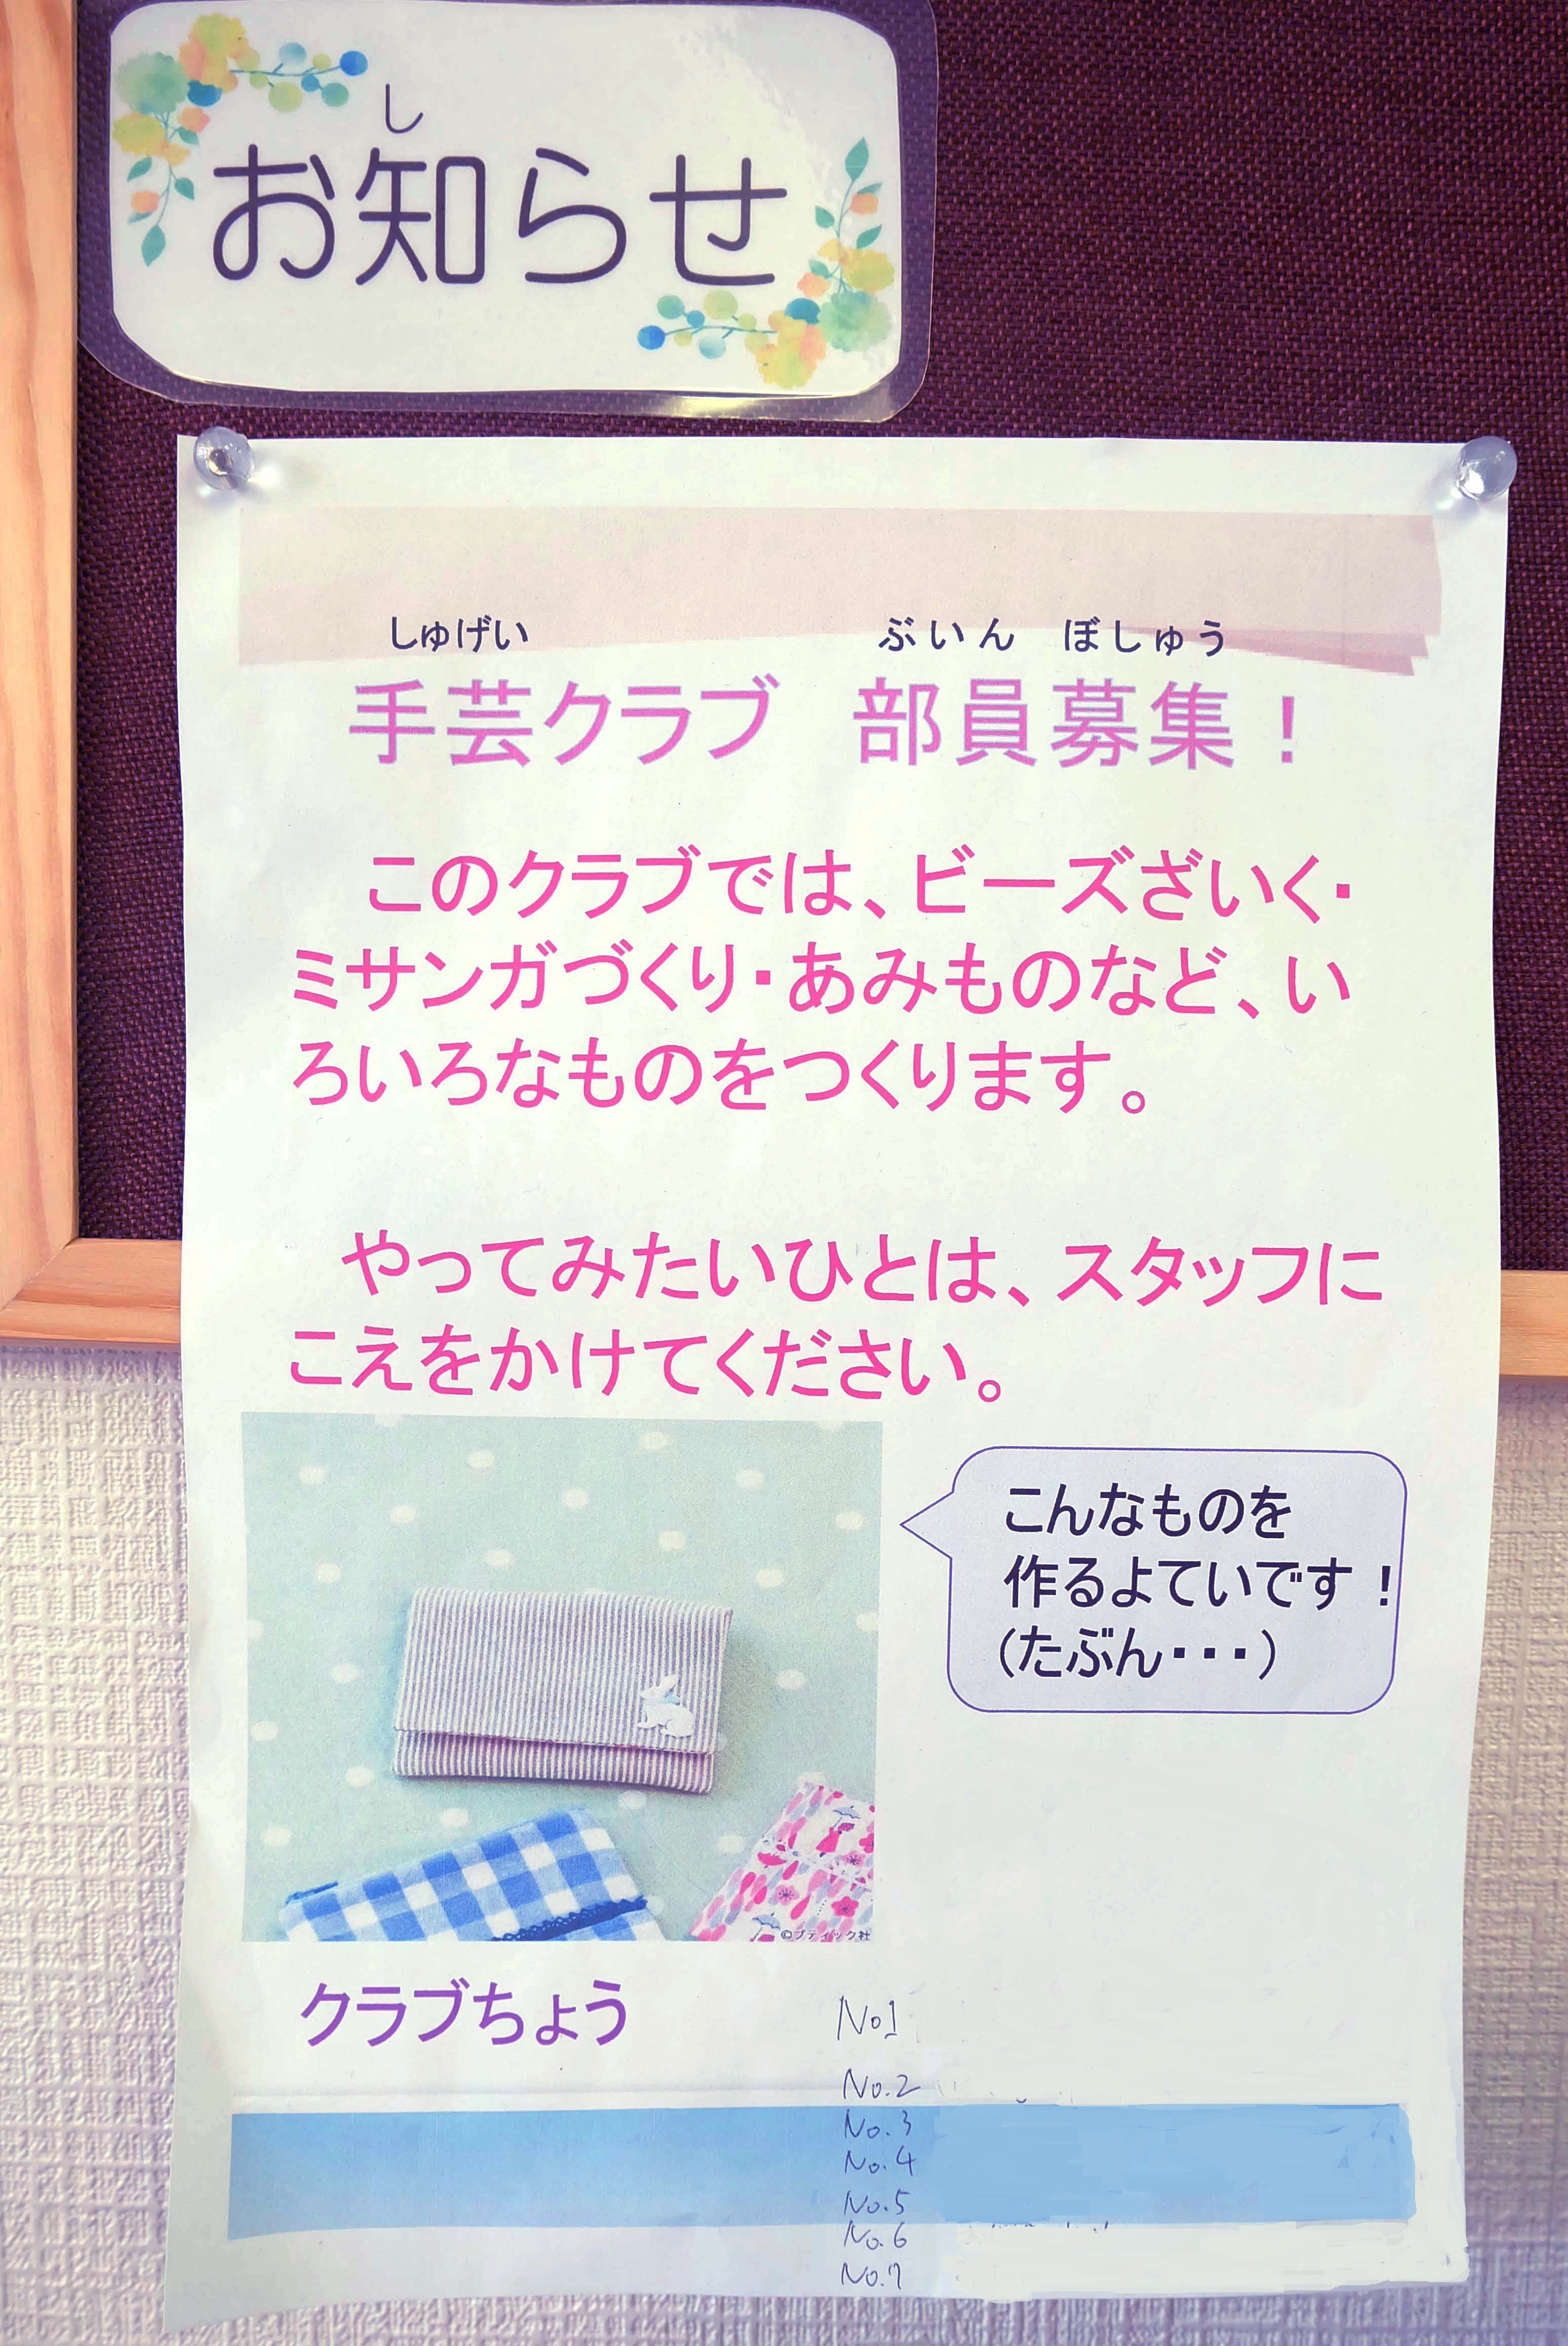 し
お知らせ
しゅげい ぶいん ぼしゅう
手芸クラブ 部員募集！
このクラブでは、ビーズざいく・
ミサンガづくり・あみものなど、い
ろいろなものをつくります。
やってみたいひとは、スタッフに
こえをかけてください。
こんなものを
作るよていです！
（たぶん・・・）
©ブティック社
クラブちょう
No1
No.2
No.3
No.4
No.5
No.6
No.7